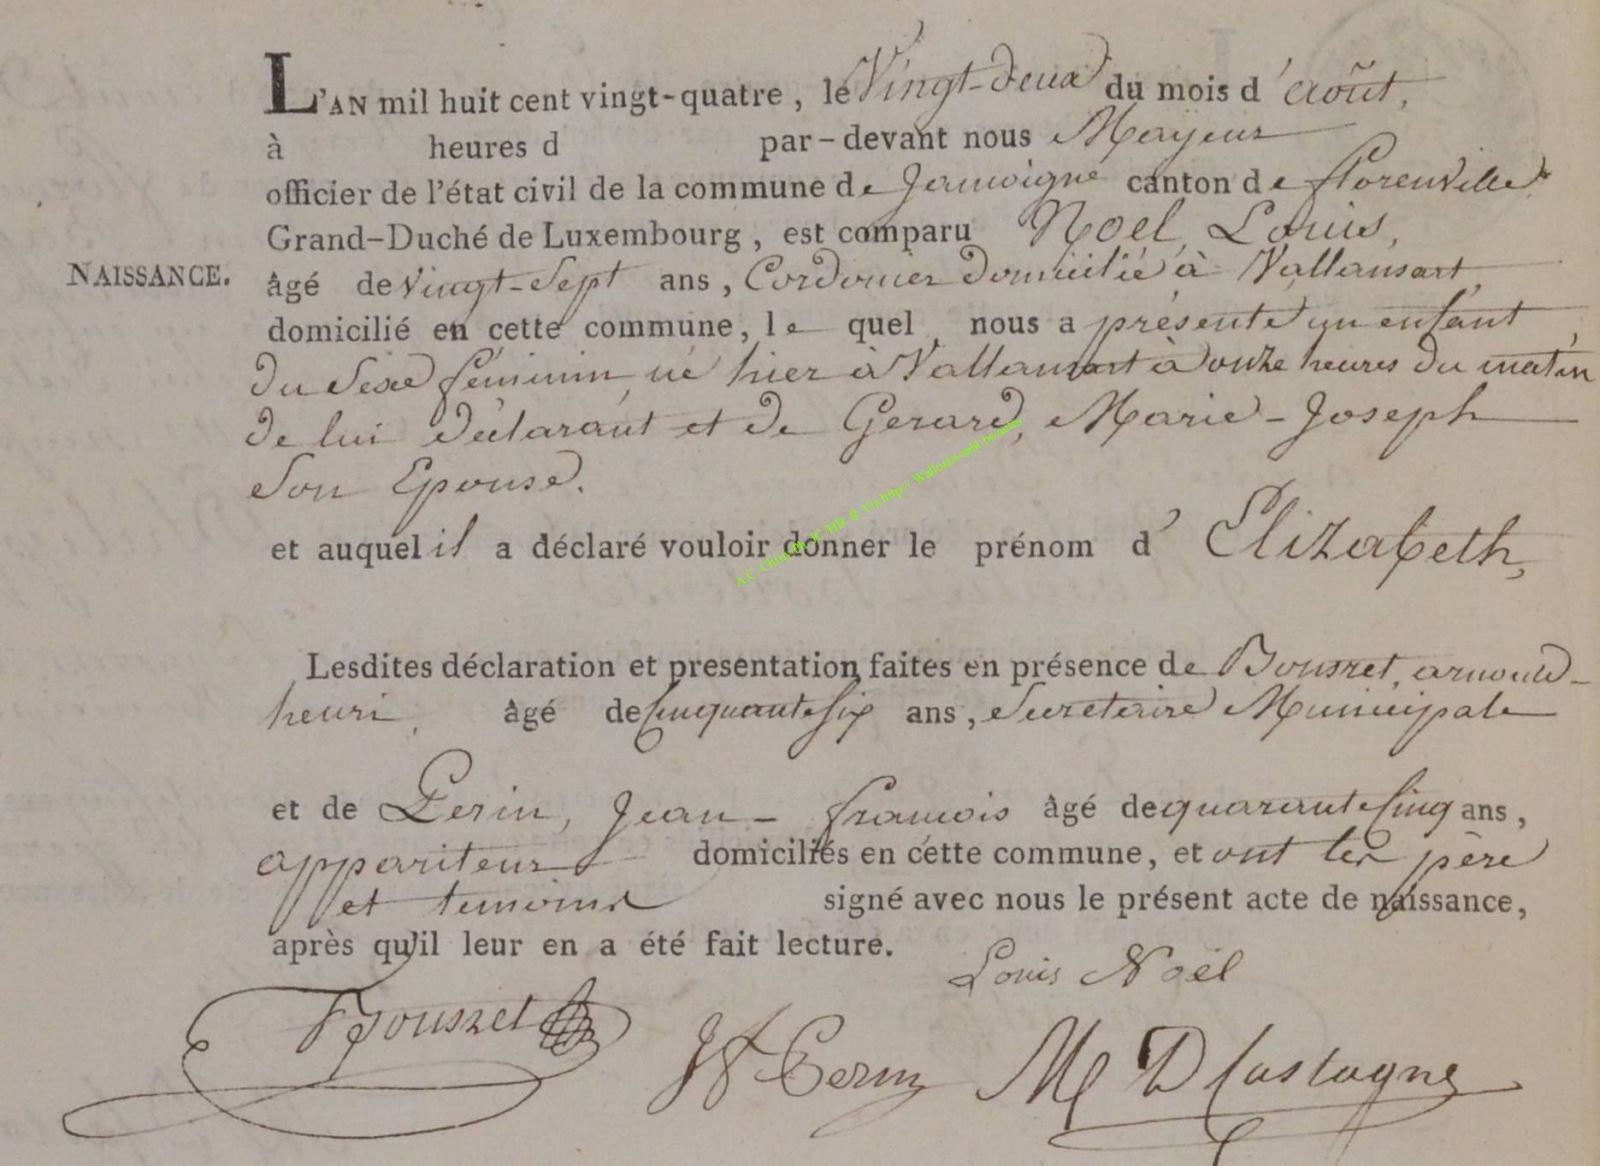 L'AN mil huit cent vingt-quatre, le Vingt-deux du mois d'août,
à heures d par-devant nous Mayeur
officier de l'état civil de la commune de Jamoigne canton de florenville
Grand-Duché de Luxembourg, est comparu Noel, Louis,
NAISSANCE. âgé de vingt-Sept ans, Cordonier domicilié à Vallansart,
domicilié en cette commune, le quel nous a présenté un enfant
du Sexe féminin né hier à Vallansart à onze heures du matin
de lui déclarant et de Gerard, Marie-Joseph
Son Epouse.
et auquel il a déclaré vouloir donner le prénom d'Elizabeth,
Lesdites déclaration et presentation faites en présence de Bouszet, arnould-
henri, âgé de Cinquante Six ans, Secretaire Municipale
et de Perin, Jean-francois âgé de quarante Cinq ans,
appariteur domiciliés en cette commune, et ont les père
et temoins signé avec nous le présent acte de naissance,
après qu'il leur en a été fait lecture.
Louis Noël
Bouszet JF Perin M D Castagne